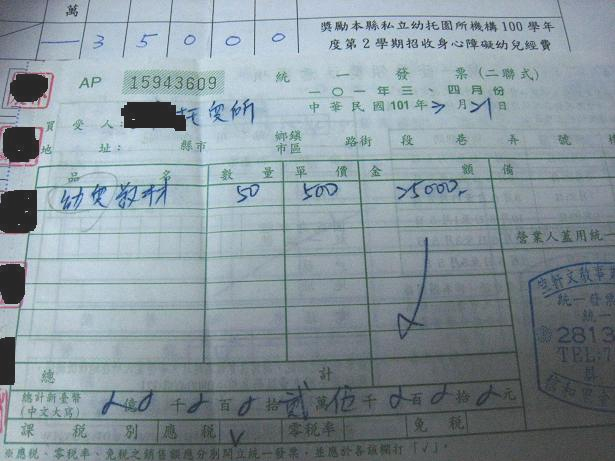 萬
一 3 5 0 0 0 獎勵本縣私立幼托園所機構100學年
度第2學期招收身心障礙幼兒經費
AP 15943609 統一發票(二聯式)
一〇一年三、四月份
中華民國101年 月 日
買受人: 托兒所
地址: 縣市 鄉鎮市區 路街 段 巷 弄 號 樓
品名 數量 單價 金額 備
幼兒教材 50 500 25000
營業人蓋用統一
文教事
統一發票
統一
2813
TEL:
總計
總計新臺幣(中文大寫) 億 千 百 拾 貳 萬 伍 千 百 拾 元
課稅別 應稅 V 零稅率 免稅
※應稅、零稅率、免稅之銷售額應分別開立統一發票,並應於各該欄打「√」。